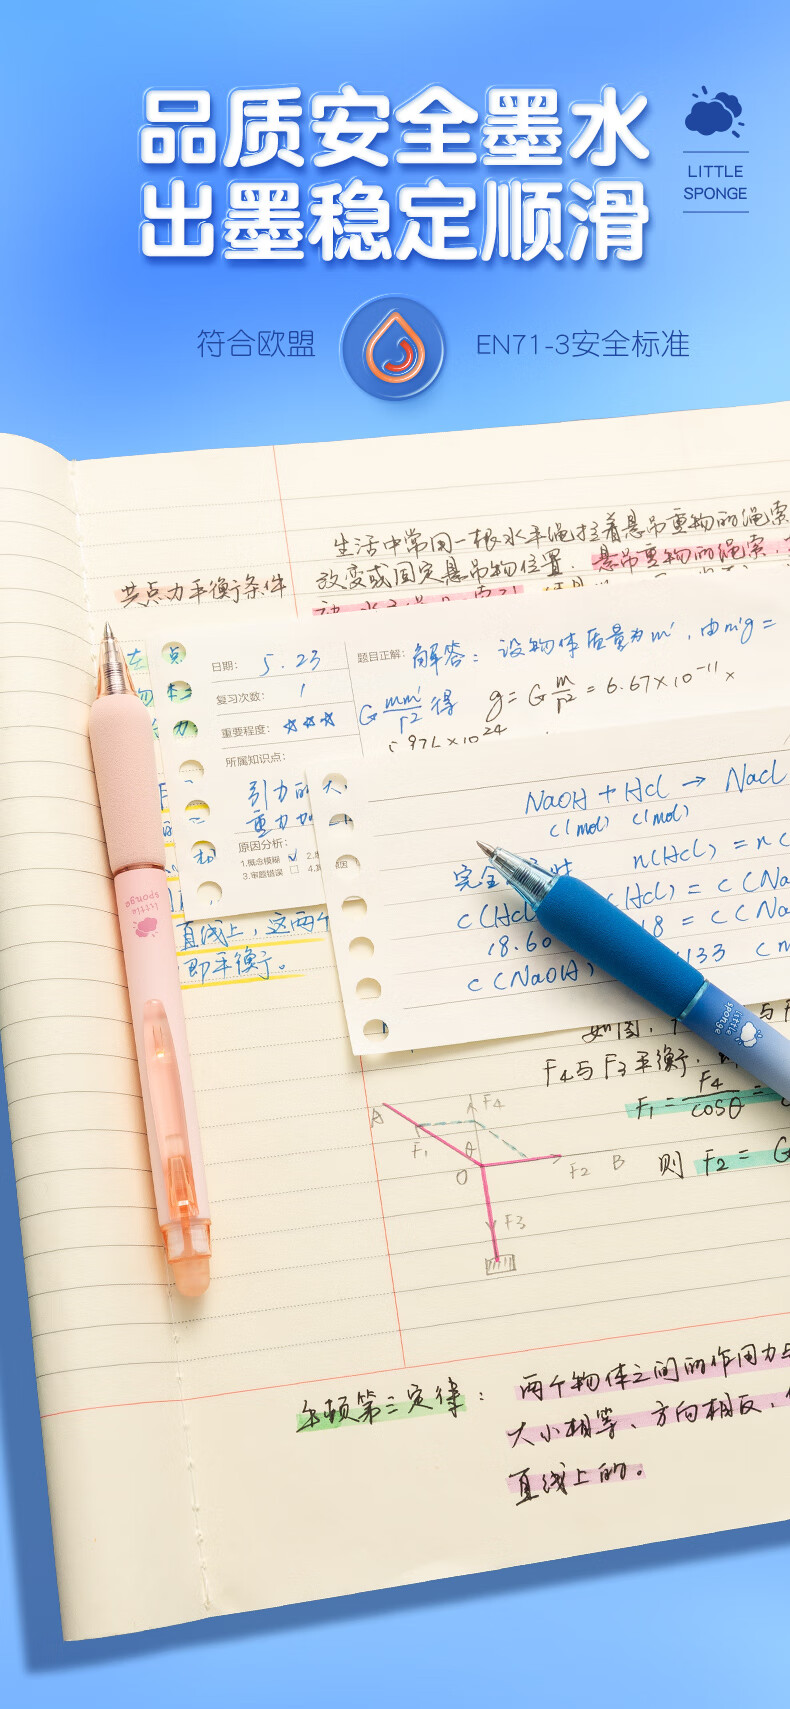 品质安全墨水
出墨稳定顺滑
LITTLE
SPONGE
符合欧盟
EN71-3安全标准
生活中常用一根水平绳拉着悬吊重物的绳索
改变或固定悬吊物位置.悬吊重物的绳索.
共点力平衡条件
左 点
物 体
力
日期: 5.23
复习次数: 1
重要程度: ☆☆☆
所属知识点:
引力的大
重力加
原因分析:
1.概念模糊 ✓
3.审题错误 □
题目正解: 解答: 设物体质量为m', 由m'g=
G mm'/r² 得 g=G m/r² = 6.67×10⁻¹¹×
NaOH + HCl → NaCl
c(mol) c(mol)
完全
n(HCl) = n(
c(HCl) = c(Na
18.60 18 = c(Na
c(NaOH) 133 (m
直线上, 这两个
即平衡。
little
sponge
little
sponge
如图,
F4与F3平衡.
F1 = F4/cosθ =
则 F2 = G
A
F4
F1
θ
O
F2
B
F3
牛顿第三定律: 两个物体之间的作用力与
大小相等、方向相反,
直线上的。